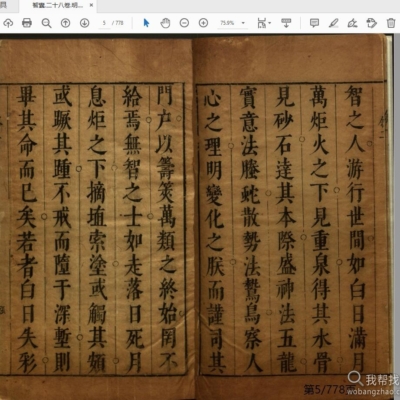 聖靈.二十八卷.明...
5 / 778
75.9%
智之人游行世間如白日滿月
萬炬火之下見重泉得其水骨
見砂石達其本際盛神法五龍
實意法螣蛇散勢法鷙鳥察人
心之理明變化之朕而謹司其
門戶以籌筴萬類之終始罔不
給焉無智之士如走落日死月
息炬之下摘埴索塗或觸其頰
或蹶其踵不戒而墮于深塹則
畢其命而已矣若者白日失彩
第5/778
我帮找
wobangzhao.com